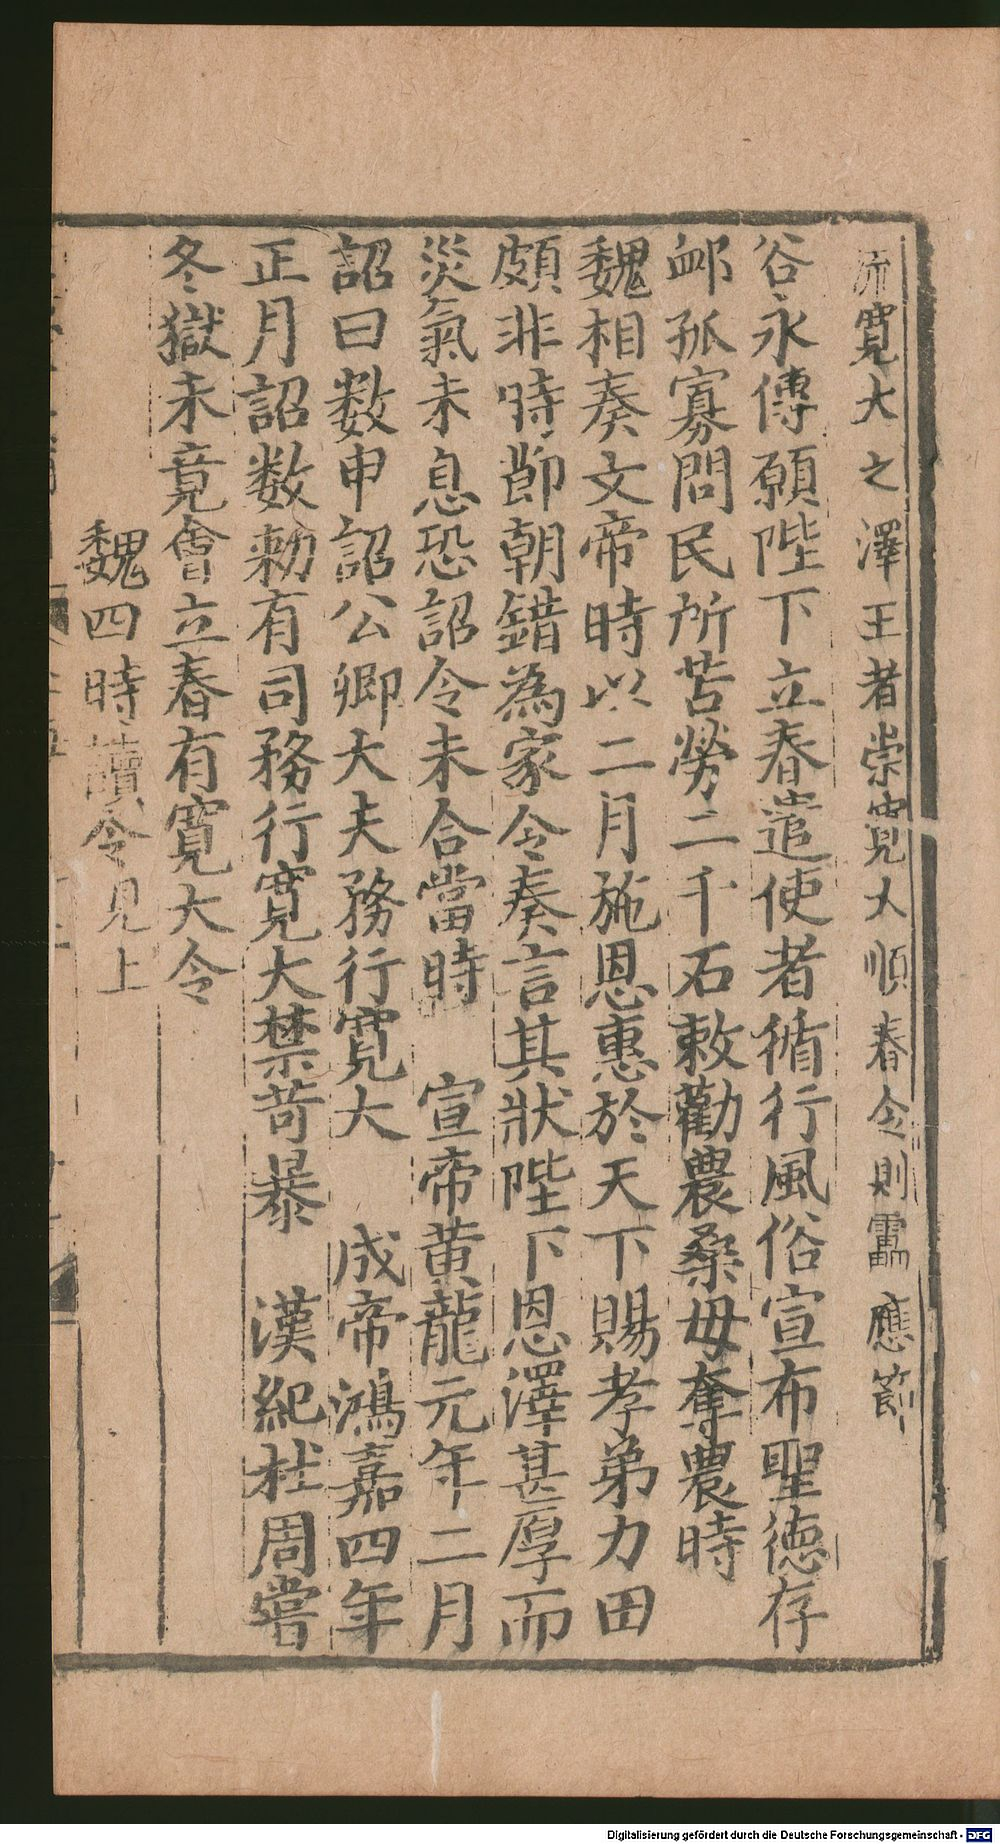 沛寛大之澤王者崇寛大順春令則靁應節
谷永傳願陛下立春遣使者循行風俗宣布聖德存
邺孤寡問民所苦勞二千石敕勸農桑毋奪農時
魏相奏文帝時以二月施恩惠於天下賜孝弟力田
頗非時節朝錯為家令奏言其狀陛下恩澤甚厚而
災氣未息恐詔令未合當時　宣帝黄龍元年二月
詔曰数申詔公卿大夫務行寛大　成帝鴻嘉四年
正月詔数勑有司務行寛大禁苛暴　漢紀杜周嘗
冬獄未竟會立春有寛大令
魏四時讀令見上
Digitalisierung gefördert durch die Deutsche Forschungsgemeinschaft - DFG